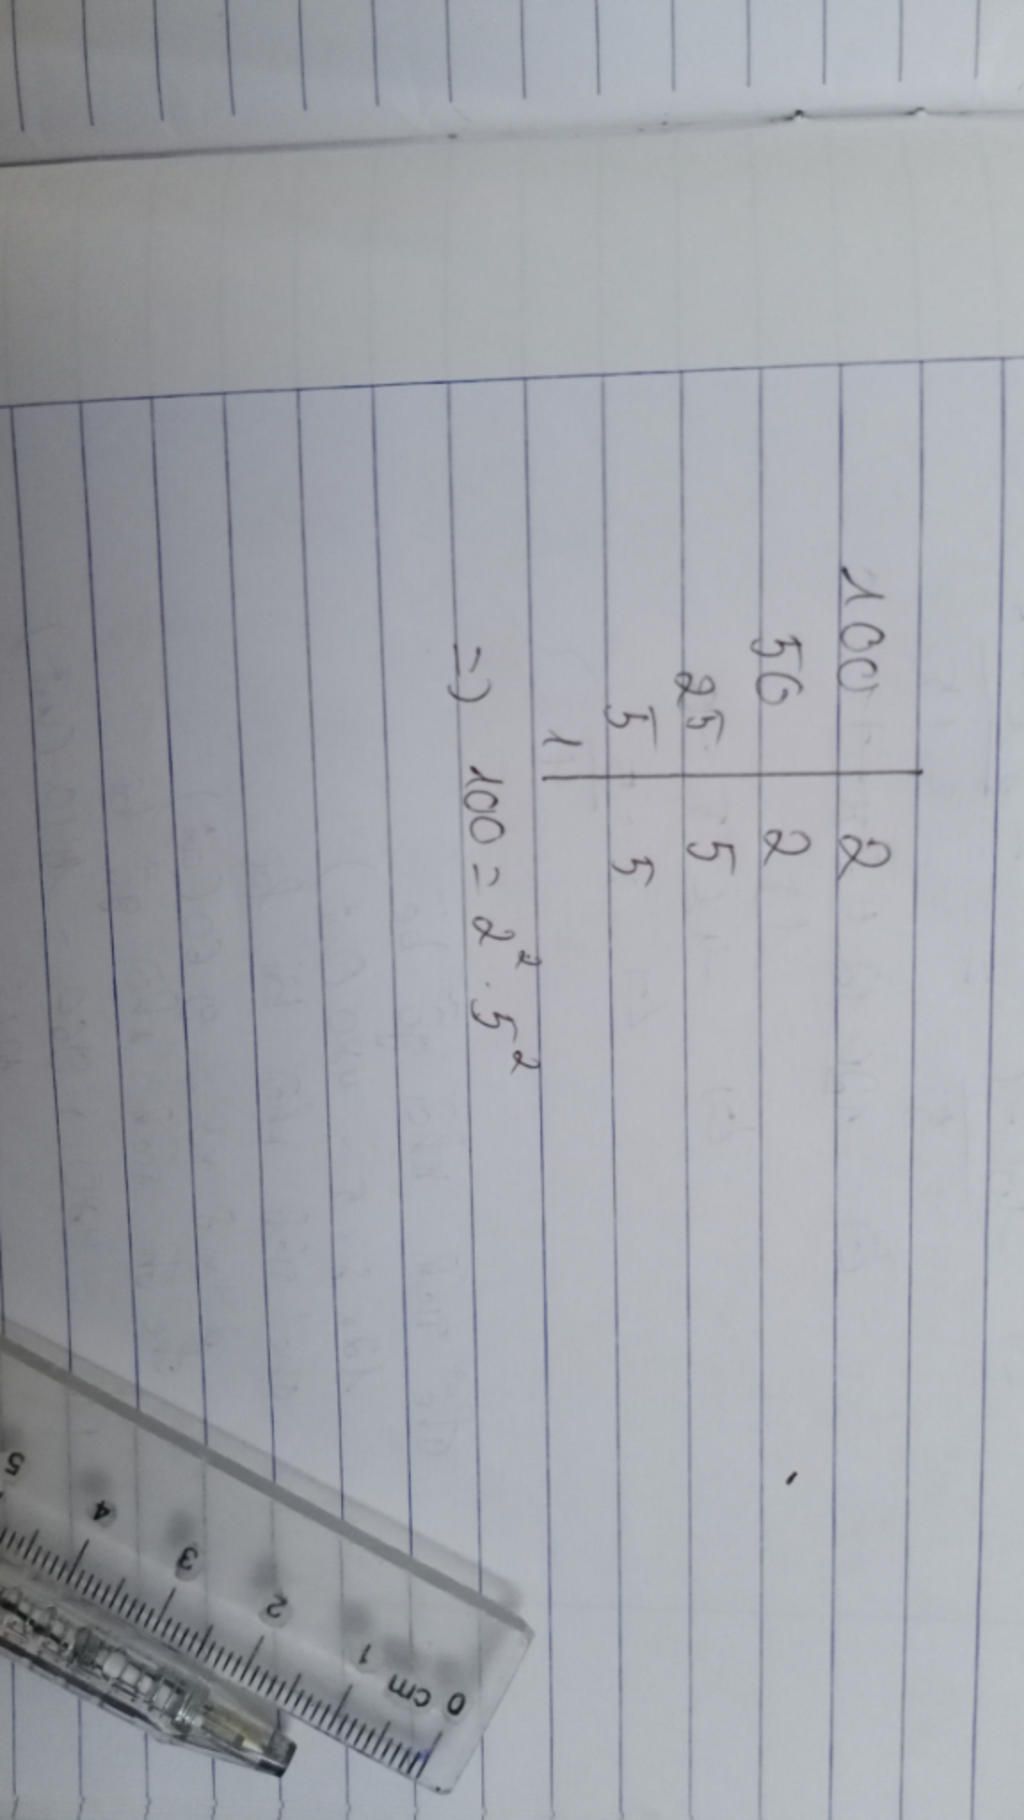 100 2
50 2
25 5
5 5
1
=) 100 = 2² . 5²
0 cm 1 2 3 4 5